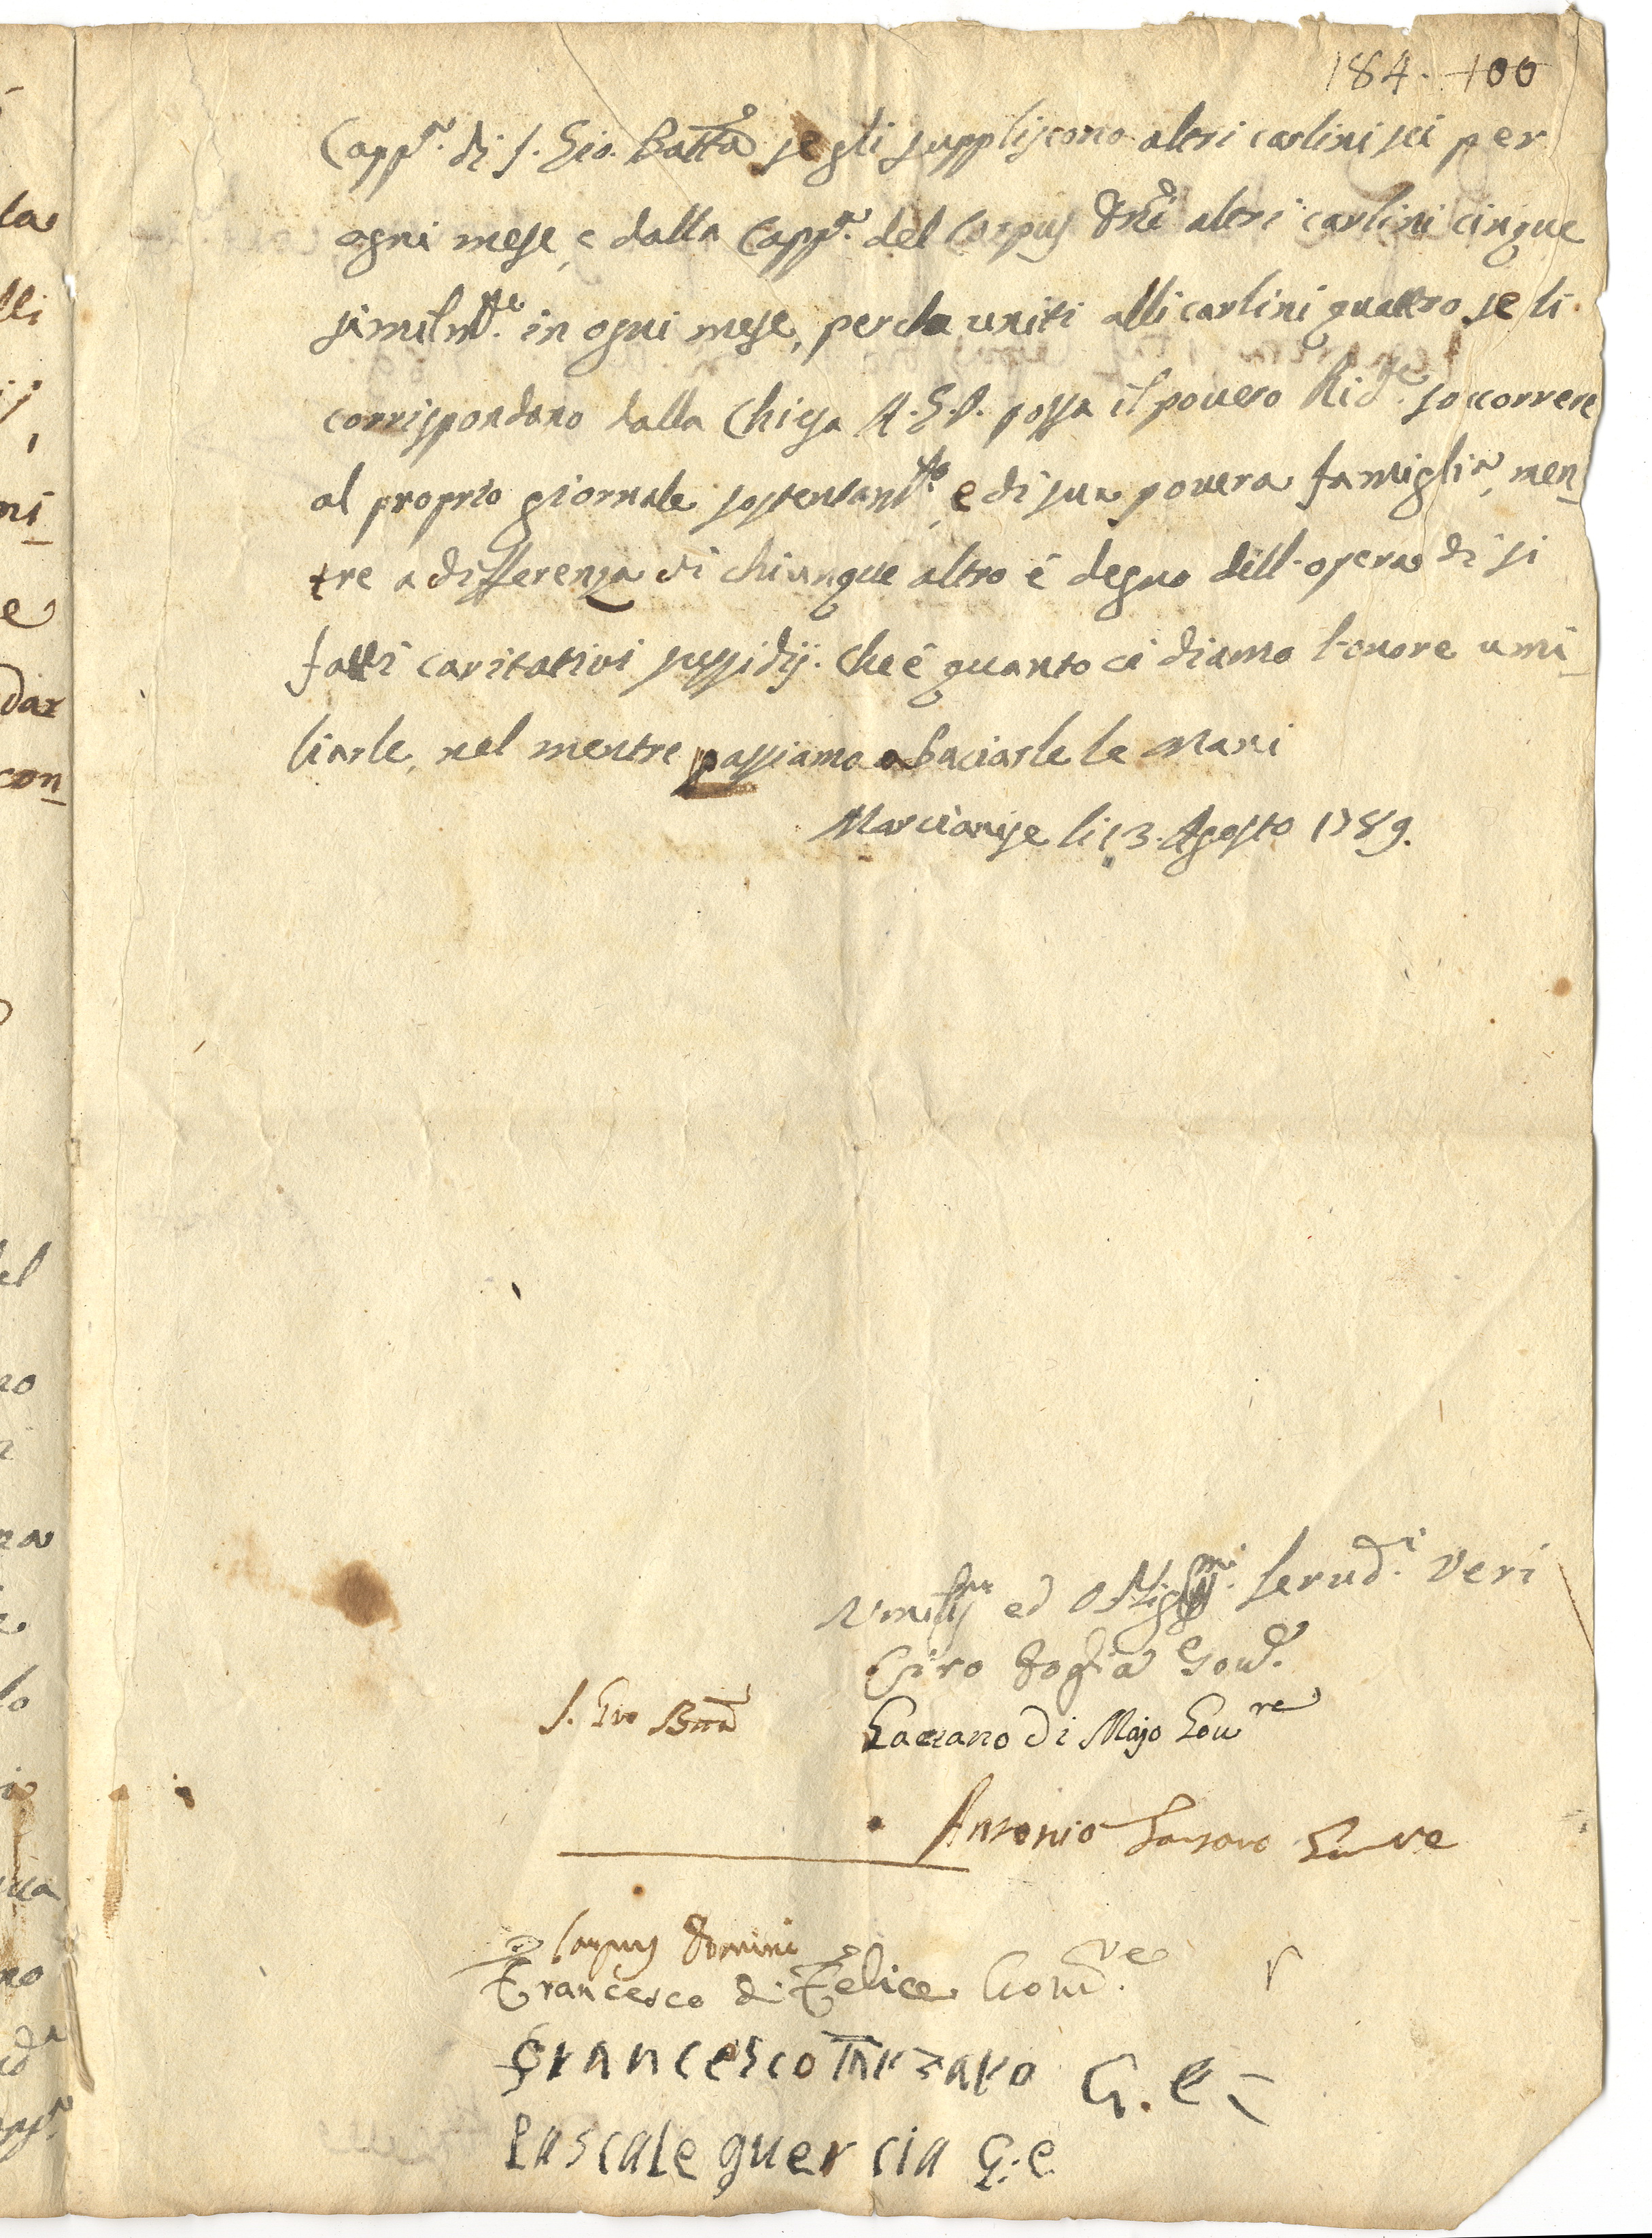 184. 100
Capp.ª di S. Gio: Batta se gli suppliscono altri carlini sei per
ogni mese, e dalla Capp.ª del Corpus Dñi altri carlini cinque
similm.te in ogni mese, perche uniti alli carlini quattro se li
corrispondano dalla Chiesa A.G.P. possa il povero Rid.e soccorrere
al proprio giornale sostentam.to, e di sua povera famiglia, men_
tre a differenza di chiunque altro é degno dell'opera di si
fatti caritativi sussidij. Che é quanto ci diamo l'onore umi_
liarle, nel mentre passiamo a baciarle le Mani
Marcianise li 13. Agosto 1789.
Umiliss.mi ed Obligss.mi Serud.i Veri
Ciro Foglia Gou.e
S. Gio Btta
Gaetano di Majo Gou.re
Antonio
Corpus Domini
Francesco di Felice Gou.re
Francesco Tarzaro G. e
Pascale guercia G. e